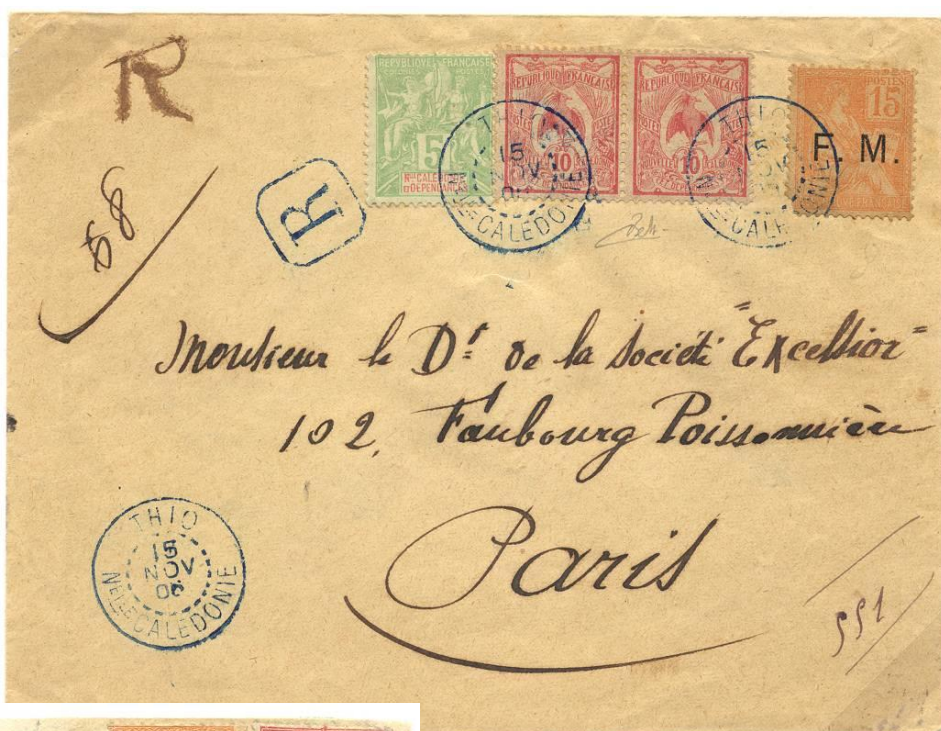 R
89
R
REPUBLIQUE FRANCAISE
COLONIES POSTES
5
Nlle CALEDONIE
et DEPENDANCES
REPUBLIQUE FRANCAISE
10
REPUBLIQUE FRANCAISE
10
POSTES
15
F. M.
THIO
15
NOV
Nlle CALEDONIE
THIO
15
Nlle CALEDONIE
Monsieur le Dr de la Société "Excelsior"
102, Faubourg Poissonnière
Paris
THIO
15
NOV
06
Nlle CALEDONIE
551